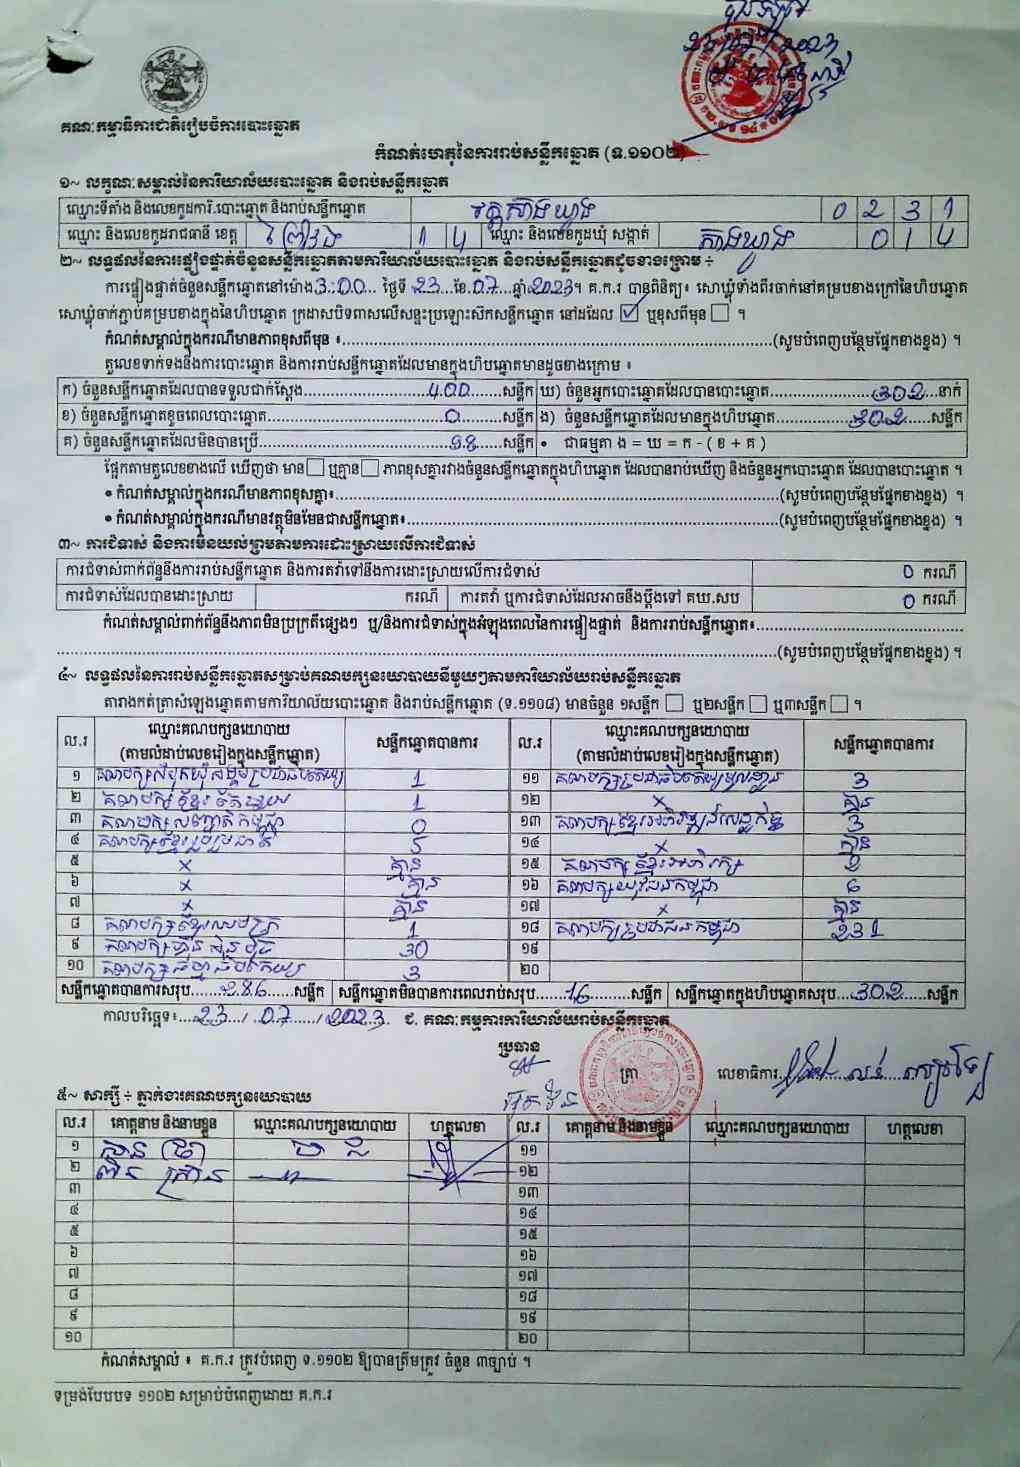 គណៈកម្មាធិការជាតិរៀបចំការបោះឆ្នោត
កំណត់ហេតុនៃការរាប់សន្លឹកឆ្នោត (ទ.១១០២)
១~ លក្ខណៈសម្គាល់នៃការិយាល័យបោះឆ្នោត និងរាប់សន្លឹកឆ្នោត
ឈ្មោះទីតាំង និងលេខកូដការិ.បោះឆ្នោត និងរាប់សន្លឹកឆ្នោត 0 2 3 1
ឈ្មោះ និងលេខកូដរាជធានី ខេត្ត ព្រៃវែង 1 4 ឈ្មោះ និងលេខកូដឃុំ សង្កាត់ 0 1 4
២~ លទ្ធផលនៃការផ្ទៀងផ្ទាត់ចំនួនសន្លឹកឆ្នោតតាមការិយាល័យបោះឆ្នោត និងរាប់សន្លឹកឆ្នោតដូចខាងក្រោម ÷
ការផ្ទៀងផ្ទាត់ចំនួនសន្លឹកឆ្នោតនៅម៉ោង 3:00 ថ្ងៃទី 23 ខែ 07 ឆ្នាំ 2023។ គ.ក.រ បានពិនិត្យ៖ សោឃ្លុំទាំងពីរចាក់នៅគម្របខាងក្រៅនៃហិបឆ្នោត
សោឃ្លុំចាក់ភ្ជាប់គម្របខាងក្នុងនៃហិបឆ្នោត ក្រដាសបិទពាសលើសន្ទះប្រឡោះសឹកសន្លឹកឆ្នោត នៅដដែល ☑ ឬខុសពីមុន ☐ ។
កំណត់សម្គាល់ក្នុងករណីមានភាពខុសពីមុន ៖ (សូមបំពេញបន្ថែមផ្នែកខាងខ្នង) ។
តួលេខទាក់ទងនឹងការបោះឆ្នោត និងការរាប់សន្លឹកឆ្នោតដែលមានក្នុងហិបឆ្នោតមានដូចខាងក្រោម ៖
ក) ចំនួនសន្លឹកឆ្នោតដែលបានទទួលជាក់ស្តែង 400 សន្លឹក ឃ) ចំនួនអ្នកបោះឆ្នោតដែលបានបោះឆ្នោត 302 នាក់
ខ) ចំនួនសន្លឹកឆ្នោតខូចពេលបោះឆ្នោត 0 សន្លឹក ង) ចំនួនសន្លឹកឆ្នោតដែលមានក្នុងហិបឆ្នោត 302 សន្លឹក
គ) ចំនួនសន្លឹកឆ្នោតដែលមិនបានប្រើ 98 សន្លឹក • ជាធម្មតា ង = ឃ = ក - ( ខ + គ )
ផ្អែកតាមតួលេខខាងលើ ឃើញថា មាន ☐ ឬគ្មាន ☐ ភាពខុសគ្នារវាងចំនួនសន្លឹកឆ្នោតក្នុងហិបឆ្នោត ដែលបានរាប់ឃើញ និងចំនួនអ្នកបោះឆ្នោត ដែលបានបោះឆ្នោត ។
• កំណត់សម្គាល់ក្នុងករណីមានភាពខុសគ្នា៖ (សូមបំពេញបន្ថែមផ្នែកខាងខ្នង) ។
• កំណត់សម្គាល់ក្នុងករណីមានវត្ថុមិនមែនជាសន្លឹកឆ្នោត៖ (សូមបំពេញបន្ថែមផ្នែកខាងខ្នង) ។
៣~ ការជំទាស់ និងការមិនយល់ព្រមតាមការដោះស្រាយលើការជំទាស់
ការជំទាស់ពាក់ព័ន្ធនឹងការរាប់សន្លឹកឆ្នោត និងការតវ៉ាទៅនឹងការដោះស្រាយលើការជំទាស់ 0 ករណី
ការជំទាស់ដែលបានដោះស្រាយ ករណី ការតវ៉ា ឬការជំទាស់ដែលអាចនឹងប្តឹងទៅ គឃ.សប 0 ករណី
កំណត់សម្គាល់ពាក់ព័ន្ធនឹងភាពមិនប្រក្រតីផ្សេងៗ ឬ/និងការជំទាស់ក្នុងអំឡុងពេលនៃការផ្ទៀងផ្ទាត់ និងការរាប់សន្លឹកឆ្នោត៖
(សូមបំពេញបន្ថែមផ្នែកខាងខ្នង) ។
៤~ លទ្ធផលនៃការរាប់សន្លឹកឆ្នោតសម្រាប់គណបក្សនយោបាយនីមួយៗតាមការិយាល័យរាប់សន្លឹកឆ្នោត
តារាងកត់ត្រាសំឡេងឆ្នោតតាមការិយាល័យបោះឆ្នោត និងរាប់សន្លឹកឆ្នោត (ទ.១១០៨) មានចំនួន ១សន្លឹក ☐ ឬ២សន្លឹក ☐ ឬ៣សន្លឹក ☐ ។
ល.រ ឈ្មោះគណបក្សនយោបាយ (តាមលំដាប់លេខរៀងក្នុងសន្លឹកឆ្នោត) សន្លឹកឆ្នោតបានការ ល.រ ឈ្មោះគណបក្សនយោបាយ (តាមលំដាប់លេខរៀងក្នុងសន្លឹកឆ្នោត) សន្លឹកឆ្នោតបានការ
១ 1 ១១ 3
២ 1 ១២ × គ្មាន
៣ គណបក្សសញ្ជាតិកម្ពុជា 0 ១៣ 3
៤ គណបក្សខ្មែររួបរួមជាតិ 5 ១៤ × គ្មាន
៥ × គ្មាន ១៥
៦ × គ្មាន ១៦ គណបក្សយុវជនកម្ពុជា 6
៧ × គ្មាន ១៧ × គ្មាន
៨ 1 ១៨ គណបក្សប្រជាជនកម្ពុជា 231
៩ គណបក្សហ្វ៊ុនស៊ិនប៉ិច 30 ១៩
១០ គណបក្សធម្មាធិបតេយ្យ 3 ២០
សន្លឹកឆ្នោតបានការសរុប 286 សន្លឹក សន្លឹកឆ្នោតមិនបានការពេលរាប់សរុប 16 សន្លឹក សន្លឹកឆ្នោតក្នុងហិបឆ្នោតសរុប 302 សន្លឹក
កាលបរិច្ឆេទ៖ 23 / 07 / 2023 ជ. គណៈកម្មការការិយាល័យរាប់សន្លឹកឆ្នោត
ប្រធាន
ត្រា លេខាធិការ
៥~ សាក្សី ÷ ភ្នាក់ងារគណបក្សនយោបាយ
ល.រ គោត្តនាម និងនាមខ្លួន ឈ្មោះគណបក្សនយោបាយ ហត្ថលេខា ល.រ គោត្តនាម និងនាមខ្លួន ឈ្មោះគណបក្សនយោបាយ ហត្ថលេខា
១ ១១
២ ១២
៣ ១៣
៤ ១៤
៥ ១៥
៦ ១៦
៧ ១៧
៨ ១៨
៩ ១៩
១០ ២០
កំណត់សម្គាល់ ៖ គ.ក.រ ត្រូវបំពេញ ទ.១១០២ ឱ្យបានត្រឹមត្រូវ ចំនួន ៣ច្បាប់ ។
ទម្រង់បែបបទ ១១០២ សម្រាប់បំពេញដោយ គ.ក.រ